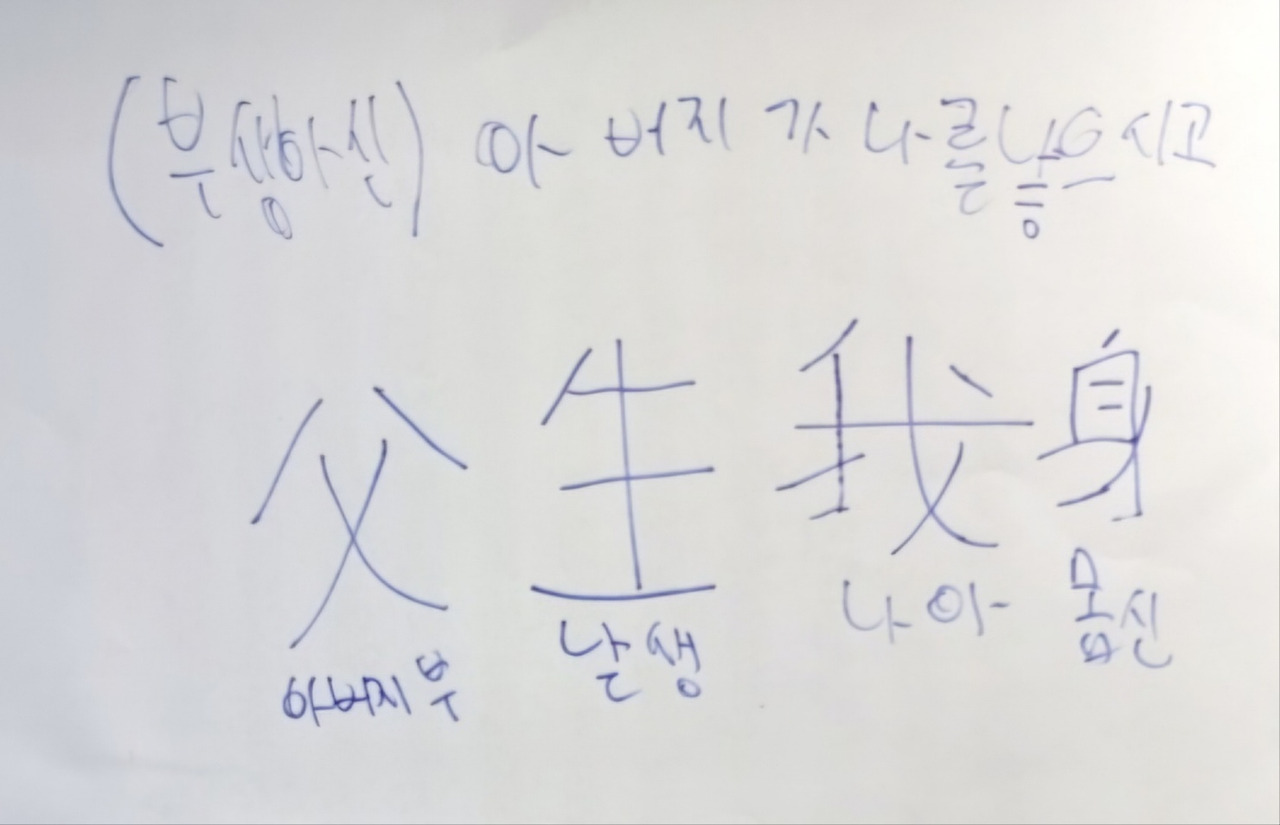 (부생아신) 아버지가 나를 낳으시고
父 生 我 身
아버지 부 날 생 나 아 몸 신